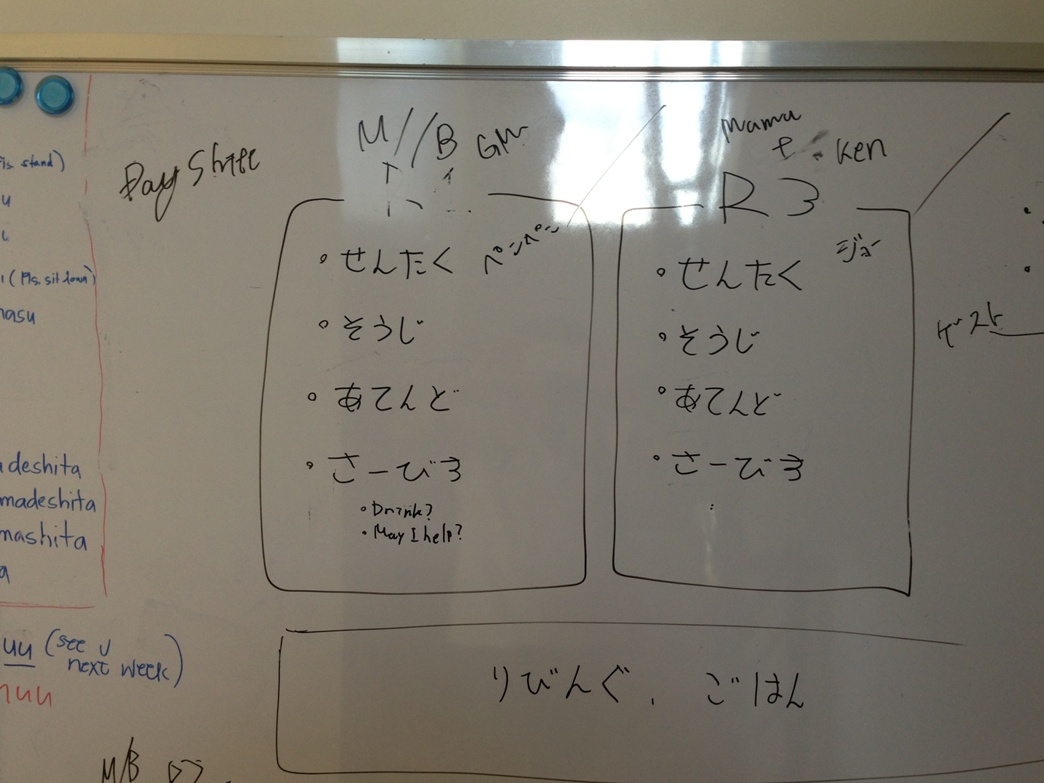 stand)
u
(Pls. sit down)
masu
deshita
madeshita
mashita
a
uu (see u
next week)
nuu
M/B
Day Shift
M//B GM
せんたく ペンペン
そうじ
あてんど
さーびす
Drink?
May I help?
Mama
+ Ken
R3
せんたく ジュー
そうじ
あてんど
さーびす
ゲスト
りびんぐ、ごはん